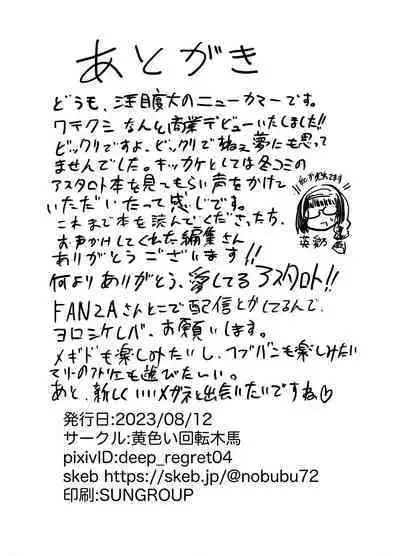 あとがき
どうも、注目度大のニューカマーです。
ワテクシ なんと商業デビューいたしました!!
ビックリですよ、ビックリでねぇ 夢にも思って
ませんでした。キッカケとしては冬コミの
アスタロト本を見てもらい声をかけて
いただいたって感じです。
これまで本を読んでくださった方、
お声がけしてくれた編集さん
ありがとうございます!!
何よりありがとう、愛してるアスタロト!!
FANZAさんとこで配信とかしてるんで、
ヨロシケレバ、お願いします。
メギドも楽しみたいし、
も楽しみたい
マリーのアトリエも遊びたいい。
あと、新しくいいメガネと出会いたいですね♡
発行日:2023/08/12
サークル:黄色い回転木馬
pixivID:deep_regret04
skeb https://skeb.jp/@nobubu72
印刷:SUNGROUP